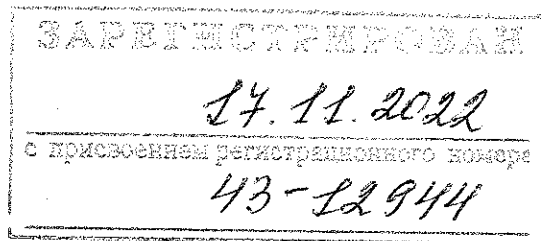 ЗАРЕГИСТРИРОВАН
17.11.2022
с присвоением регистрационного номера
43-12944